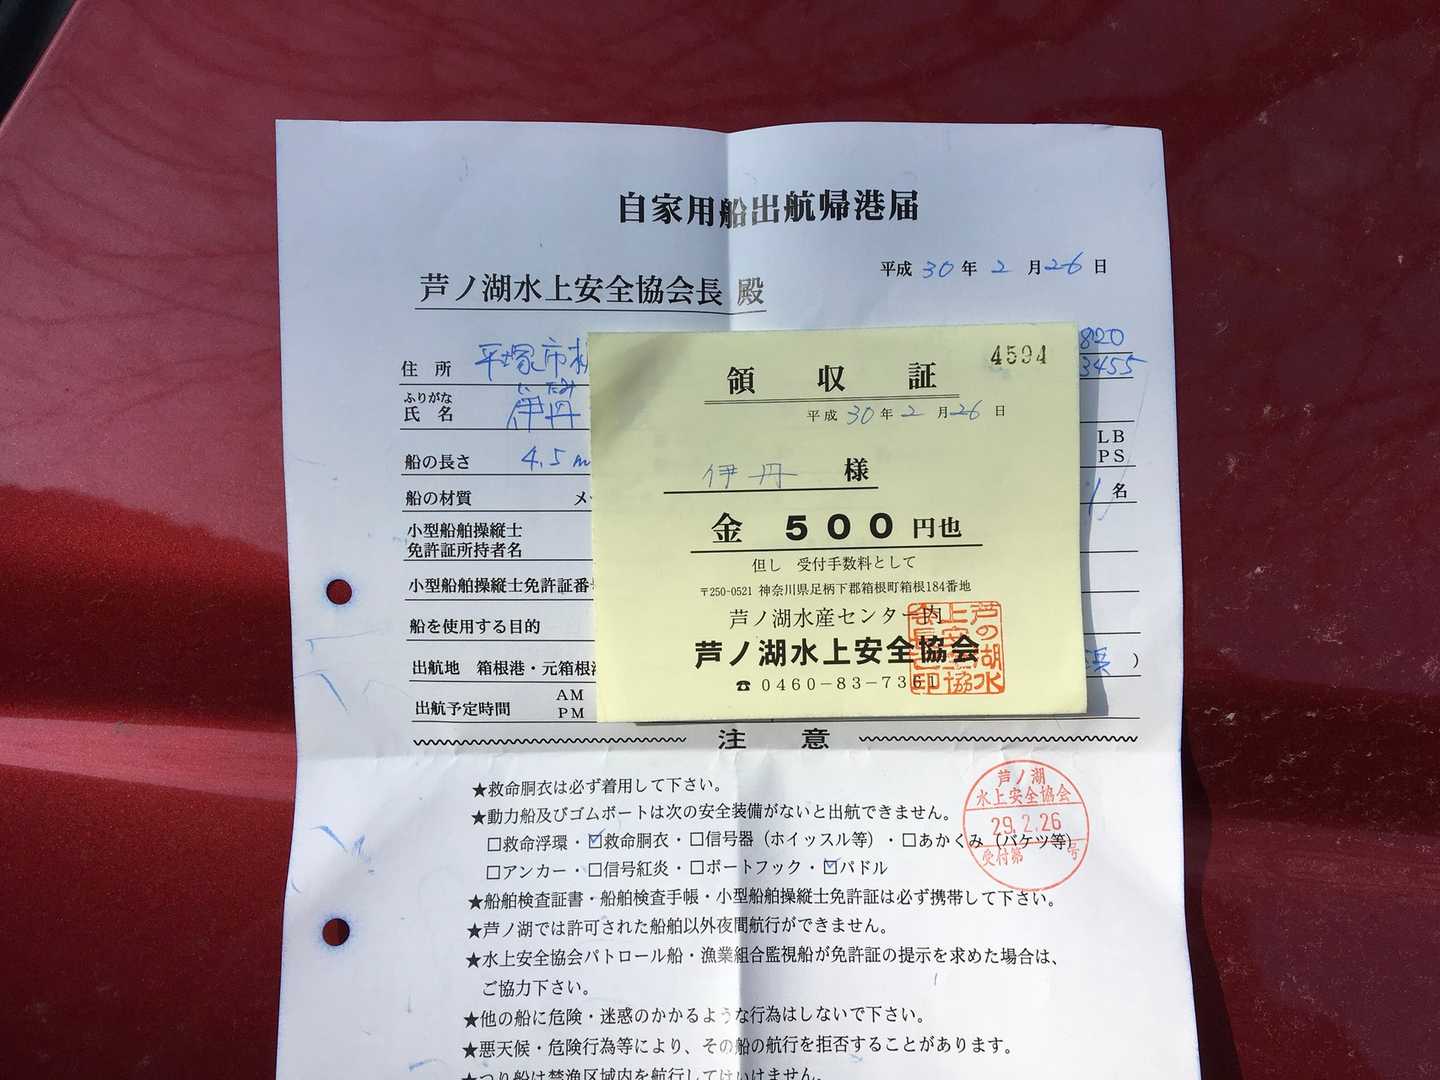 自家用船出航帰港届
平成 30 年 2 月 26 日
芦ノ湖水上安全協会長 殿
住 所 平塚市
820
3455
ふりがな いたみ
氏 名 伊丹
船の長さ 4.5 m
LB
PS
船の材質 メ
1 名
小型船舶操縦士
免許証所持者名
小型船舶操縦士免許証番
船を使用する目的
出航地 箱根港・元箱根
浜 )
出航予定時間 AM
PM
4594
領 収 証
平成 30 年 2 月 26 日
伊丹 様
金 500 円也
但し 受付手数料として
〒250-0521 神奈川県足柄下郡箱根町箱根184番地
芦ノ湖水産センター内
芦ノ湖水上安全協会
☎ 0460-83-7361
注 意
★救命胴衣は必ず着用して下さい。
★動力船及びゴムボートは次の安全装備がないと出航できません。
□救命浮環・☑救命胴衣・□信号器(ホイッスル等)・□あかくみ(バケツ等)
□アンカー・□信号紅炎・□ボートフック・☑パドル
芦ノ湖
水上安全協会
29.2.26
受付第 号
★船舶検査証書・船舶検査手帳・小型船舶操縦士免許証は必ず携帯して下さい。
★芦ノ湖では許可された船舶以外夜間航行ができません。
★水上安全協会パトロール船・漁業組合監視船が免許証の提示を求めた場合は、
ご協力下さい。
★他の船に危険・迷惑のかかるような行為はしないで下さい。
★悪天候・危険行為等により、その船の航行を拒否することがあります。
★つり船は禁漁区域内を航行してはいけません。